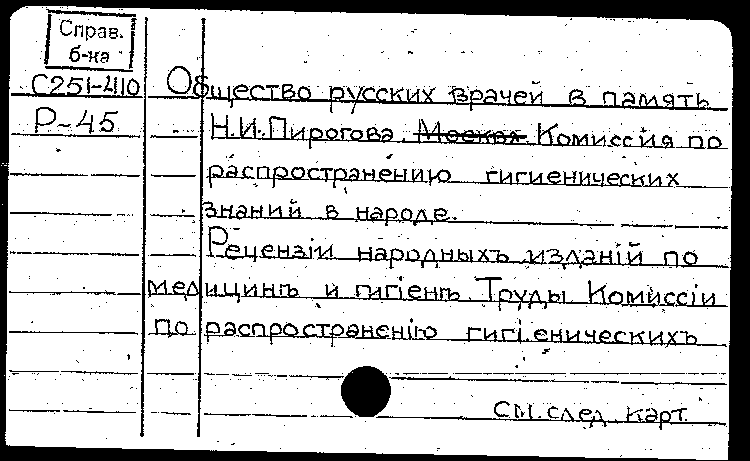 Справ.
б-ка
С251-410
Р-45
Общество русских врачей в память
Н.И.Пирогова. Москва. Комиссия по
распространению гигиенических
знаний в народе.
Рецензіи народныхъ изданій по
медицинѣ и гигіенѣ. Труды Комиссіи
по распространенію гигіеническихъ
См. след. карт.